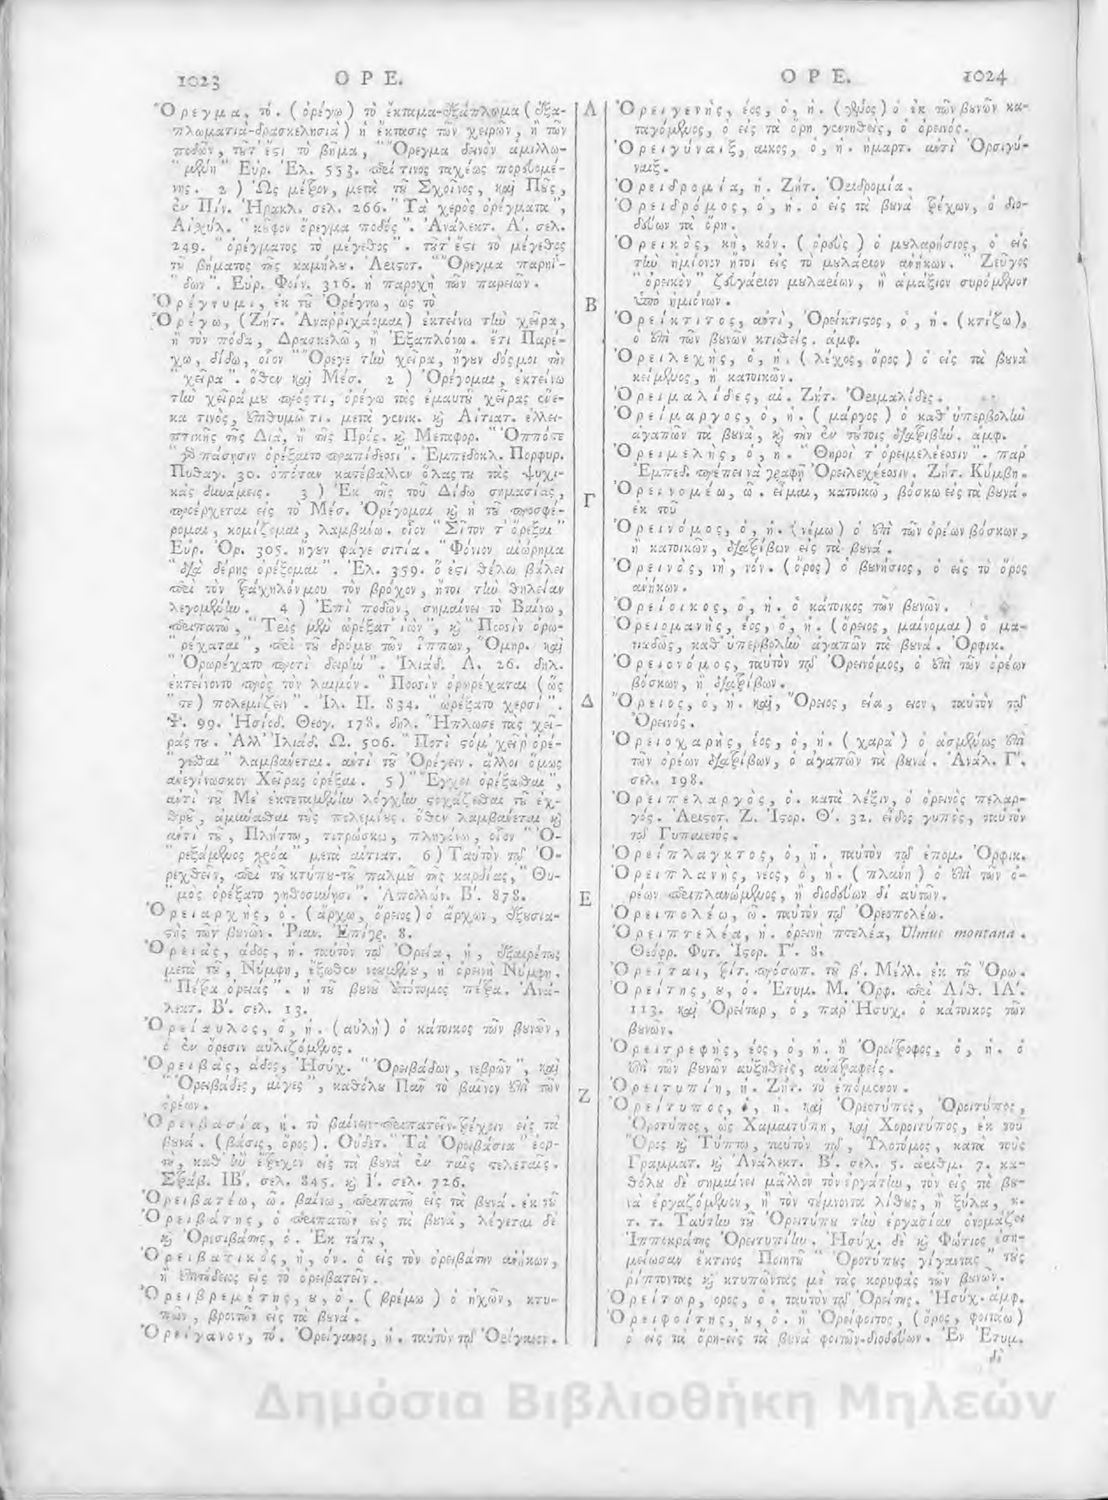 1023
Ο Ρ Ε.
Ὄρεγμα, τό. (ὀρέγω) τὸ ἔκταμα-ἐξάπλωμα (ἐξα-
πλωματιὰ-δρασκελησιὰ) ἢ ἔκτασις τῶν χειρῶν, ἢ τῶν
ποδῶν, τουτέστι τὸ βῆμα, "Ὄρεγμα δεινὸν ἁμιλλω-
"μένη" Εὐρ. Ἑλ. 553. περί τινος ταχέως πορευομέ-
νης. 2) Ὡς μέτρον, μετὰ τοῦ Σχοῖνος, καὶ Ποῦς,
ἐν Πίν. Ἡρακλ. σελ. 266. "Τὰ χερὸς ὀρέγματα",
Αἰσχύλ. "κοῦφον ὄρεγμα ποδός". Ἀνάλεκτ. Α΄. σελ.
249. "ὀρέγματος τὸ μέγεθος". τουτέστι τὸ μέγεθος
τοῦ βήματος τῆς καμήλου. Ἀριστοτ. "Ὄρεγμα παρηΐ-
"δων". Εὐρ. Φοίν. 316. ἡ παροχὴ τῶν παρειῶν.
Ὀρέγνυμι, ἐκ τοῦ Ὀρέγνω, ὡς τὸ
Ὀρέγω, (Ζήτ. Ἀναρριχάομαι) ἐκτείνω τὴν χεῖρα,
ἢ τὸν πόδα, Δρασκελῶ, ἢ Ἐξαπλόνω. ἔτι Παρέ-
χω, δίδω, οἷον "Ὄρεγε τὴν χεῖρα, ἤγουν δός μοι τὴν
"χεῖρα". ὅθεν καὶ Μέσ. 2) Ὀρέγομαι, ἐκτείνω
τὴν χεῖρά μου πρός τι, ὀρέγω τὰς ἐμαυτοῦ χεῖρας ἕνε-
κά τινος, ἐπιθυμῶ τι. μετὰ γενικ. καὶ Αἰτιατ. ἐλλει-
πτικῆς τῆς Διὰ, ἢ τῆς Πρός. καὶ Μεταφορ. "Ὁππότε
"γὰρ πάσησιν ὀρέξαιτο πραπίδεσσι". Ἐμπεδοκλ. Πορφυρ.
Πυθαγ. 30. ὁπόταν κατέβαλλεν ὅλας του τὰς ψυχι-
κὰς δυνάμεις. 3) Ἐκ τῆς τοῦ Δίδω σημασίας,
προέρχεται εἰς τὸ Μέσ. Ὀρέγομαι καὶ ἡ τοῦ προσφέ-
ρομαι, κομίζομαι, λαμβάνω. οἷον "Σῖτον τ᾽ ὄρεξαι"
Εὐρ. Ὀρ. 305. ἤγουν φάγε σιτία. "Φόνιον αἰώρημα
"διὰ δέρης ὀρέξομαι". Ἑλ. 359. ὅ ἐστι θέλω βάλει
περὶ τὸν τράχηλόν μου τὸν βρόχον, ἤτοι τὴν θηλείαν
λεγομένην. 4) Ἐπὶ ποδῶν, σημαίνει τὸ Βαίνω,
περιπατῶ, "Τρὶς μὲν ὠρέξατ᾽ ἰὼν", καὶ "Ποσὶν ὀρω-
"ρέχαται", περὶ τοῦ δρόμου τῶν ἵππων, Ὅμηρ. καὶ
"Ὀρωρέχατο προτὶ δειρήν". Ἰλιάδ. Λ. 26. δηλ.
ἐκτείνοντο πρὸς τὸν λαιμόν. "Ποσσὶν ὀρωρέχαται (ὥς
"τε) πολεμίζειν". Ἰλ. Π. 834. "ὠρέξατο χερσί".
Ψ. 99. Ἡσίοδ. Θεογ. 178. δηλ. Ἥπλωσε τὰς χεῖ-
ράς του. Ἀλλ᾽ Ἰλιάδ. Ω. 506. "Ποτὶ στόμ᾽ χεῖρ᾽ ὀρέ-
"γεσθαι" λαμβάνεται. ἀντὶ τοῦ Ὀρέγειν. ἄλλοι ὅμως
ἀνεγίνωσκον Χεῖρας ὀρέξαι. 5) "Ἔγχει ὀρέξασθαι",
ἀντὶ τοῦ Μὲ ἐκτεταμένην λόγχην στοχάζεσθαι τοῦ ἐχ-
θροῦ, ἀμύνασθαι τοὺς πολεμίους. ὅθεν λαμβάνεται καὶ
ἀντὶ τοῦ, Πλήττω, τιτρώσκω, πληγόνω, οἷον "Ὀ-
"ρεξάμενος χρόα" μετὰ αἰτιατ. 6) Ταὐτὸν τῷ Ὀ-
ρεχθεῖν, περὶ τοῦ κτύπου-τοῦ παλμοῦ τῆς καρδίας, "Θυ-
"μὸς ὀρέξατο γηθοσύνῃσι". Ἀπολλών. Β΄. 878.
Ὀρειάρχης, ὁ. (ἄρχω, ὄρειος) ὁ ἄρχων, ἐξουσια-
στὴς τῶν βουνῶν. Ῥιαν. Ἐπίγρ. 8.
Ὀρειὰς, άδος, ἡ. ταὐτὸν τῷ Ὀρεία, ἡ, ἐξαιρέτως
μετὰ τοῦ, Νύμφη, ἔξωθεν νοουμένου, ἡ ὀρεινὴ Νύμφη.
"Πέτρα ὀρειάς". ἡ τοῦ βουνοῦ ἀπότομος πέτρα. Ἀνά-
λεκτ. Β΄. σελ. 13.
Ὀρείαυλος, ὁ, ἡ. (αὐλὴ) ὁ κάτοικος τῶν βουνῶν,
ὁ ἐν ὄρεσιν αὐλιζόμενος.
Ὀρειβὰς, άδος, Ἡσύχ. "Ὀρειβάδων, νεβρῶν", καὶ
"Ὀρειβάδες, αἶγες", καθόλου Πᾶν τὸ βαῖνον ἐπὶ τῶν
ὀρέων.
Ὀρειβασία, ἡ. τὸ βαίνειν-περιπατεῖν-τρέχειν εἰς τὰ
βουνά. (βάσις, ὄρος). Οὐδετ. "Τὰ Ὀρειβάσια" ἑορ-
τὴ, καθ᾽ ἣν ἔτρεχον εἰς τὰ βουνὰ ἐν ταῖς τελεταῖς.
Στράβ. ΙΒ΄. σελ. 845. καὶ Ι΄. σελ. 726.
Ὀρειβατέω, ῶ. βαίνω, περιπατῶ εἰς τὰ βουνά. ἐκ τοῦ
Ὀρειβάτης, ὁ περιπατῶν εἰς τὰ βουνὰ, λέγεται δὲ
καὶ Ὀρεσιβάτης, ὁ. Ἐκ τούτου,
Ὀρειβατικὸς, ἡ, όν. ὁ εἰς τὸν ὀρειβάτην ἀνήκων,
ἢ ἐπιτήδειος εἰς τὸ ὀρειβατεῖν.
Ὀρειβρεμέτης, ου, ὁ. (βρέμω) ὁ ἠχῶν, κτυ-
πῶν, βροντῶν εἰς τὰ βουνά.
Ὀρείγανον, τό. Ὀρείγανος, ἡ. ταὐτὸν τῷ Ὀρίγανον.
Α
Β
Γ
Δ
Ε
Ζ
Ο Ρ Ε.
1024
Ὀρειγενὴς, έος, ὁ, ἡ. (γένος) ὁ ἐκ τῶν βουνῶν κα-
ταγόμενος, ὁ εἰς τὰ ὄρη γεννηθεὶς, ὁ ὀρεινός.
Ὀρειγύναιξ, αικος, ὁ, ἡ. ἡμαρτ. ἀντὶ Ὀρσιγύ-
ναιξ.
Ὀρειδρομία, ἡ. Ζήτ. Ὀριδρομία.
Ὀρειδρόμος, ὁ, ἡ. ὁ εἰς τὰ βουνὰ τρέχων, ὁ διο-
δεύων τὰ ὄρη.
Ὀρεικὸς, κὴ, κόν. (ὀρεὺς) ὁ μουλαρήσιος, ὁ εἰς
τὴν ἡμίονον ἤτοι εἰς τὸ μουλάριον ἀνήκων. "Ζεῦγος
"ὀρεικὸν" ζευγάριον μουλαρίων, ἢ ἁμάξιον συρόμενον
ὑπὸ ἡμιόνων.
Ὀρείκτιτος, ἀντὶ, Ὀρείκτιστος, ὁ, ἡ. (κτίζω),
ὁ ἐπὶ τῶν βουνῶν κτισθείς. ἀμφ.
Ὀρειλεχὴς, ὁ, ἡ. (λέχος, ὄρος) ὁ εἰς τὰ βουνὰ
κείμενος, ἢ κατοικῶν.
Ὀρειμαλίδες, αἱ. Ζήτ. Ὀριμαλίδες.
Ὀρείμαργος, ὁ, ἡ. (μάργος) ὁ καθ᾽ ὑπερβολὴν
ἀγαπῶν τὰ βουνὰ, καὶ τὴν ἐν τούτοις διατριβήν. ἀμφ.
Ὀρειμελὴς, ὁ, ἡ. "Θῆροί τ᾽ ὀρειμελέεσσιν". παρ᾽
Ἐμπεδ. πρέπει νὰ γραφῇ Ὀρειλεχέεσσιν. Ζήτ. Κύμβη.
Ὀρεινομέω, ῶ. εἶμαι, κατοικῶ, βόσκω εἰς τὰ βουνά.
ἐκ τοῦ
Ὀρεινόμος, ὁ, ἡ. (νέμω) ὁ ἐπὶ τῶν ὀρέων βόσκων,
ἢ κατοικῶν, διατρίβων εἰς τὰ βουνά.
Ὀρεινὸς, νὴ, νόν. (ὄρος) ὁ βουνήσιος, ὁ εἰς τὸ ὄρος
ἀνήκων.
Ὀρείοικος, ὁ, ἡ. ὁ κάτοικος τῶν βουνῶν.
Ὀρειομανὴς, έος, ὁ, ἡ. (ὄρειος, μαίνομαι) ὁ μα-
νιωδῶς, καθ᾽ ὑπερβολὴν ἀγαπῶν τὰ βουνά. Ὀρφικ.
Ὀρειονόμος, ταὐτὸν τῷ Ὀρεινόμος, ὁ ἐπὶ τῶν ὀρέων
βόσκων, ἢ διατρίβων.
Ὄρειος, ὁ, ἡ. καὶ, Ὄρειος, εία, ειον, ταὐτὸν τῷ
Ὀρεινός.
Ὀρειοχαρὴς, έος, ὁ, ἡ. (χαρὰ) ὁ ἀσμένως ἐπὶ
τῶν ὀρέων διατρίβων, ὁ ἀγαπῶν τὰ βουνά. Ἀνάλ. Γ΄.
σελ. 198.
Ὀρειπελαργὸς, ὁ. κατὰ λέξιν, ὁ ὀρεινὸς πελαρ-
γός. Ἀριστοτ. Ζ. Ἱστορ. Θ΄. 32. εἶδος γυπὸς, ταὐτὸν
τῷ Γυπαίετος.
Ὀρείπλαγκτος, ὁ, ἡ. ταὐτὸν τῷ ἑπομ. Ὀρφικ.
Ὀρειπλανὴς, νέος, ὁ, ἡ. (πλάνη) ὁ ἐπὶ τῶν ὀ-
ρέων περιπλανώμενος, ἢ διοδεύων δι᾽ αὐτῶν.
Ὀρειπολέω, ῶ. ταὐτὸν τῷ Ὀρεοπολέω.
Ὀρειπτελέα, ἡ. ὀρεινὴ πτελέα, Ulmus montana.
Θεόφρ. Φυτ. Ἱστορ. Γ΄. 8.
Ὀρεῖται, τρίτ. πρόσωπ. τοῦ β΄. Μέλλ. ἐκ τοῦ Ὄρω.
Ὀρείτης, ου, ὁ. Ἐτυμ. Μ. Ὀρφ. περὶ Λίθ. ΙΑ΄.
113. καὶ Ὀρείτωρ, ὁ, παρ᾽ Ἡσύχ. ὁ κάτοικος τῶν
βουνῶν.
Ὀρειτρεφὴς, έος, ὁ, ἡ. ἢ Ὀρείτροφος, ὁ, ἡ. ὁ
ἐπὶ τῶν βουνῶν αὐξηθεὶς, ἀνατραφείς.
Ὀρειτυπίη, ἡ. Ζήτ. τὸ ἑπόμενον.
Ὀρειτύπος, ὁ, ἡ. καὶ Ὀρεοτύπος, Ὀροιτύπος,
Ὀροτύπος, ὡς Χαμαιτύπη, καὶ Χοροιτύπος, ἐκ τοῦ
Ὄρος καὶ Τύπτω, ταὐτὸν τῷ, Ὑλοτόμος, κατὰ τοὺς
Γραμματ. καὶ Ἀνάλεκτ. Β΄. σελ. 5. ἀριθμ. 7. κα-
θόλου δὲ σημαίνει μᾶλλον τὸν ἐργάτην, τὸν εἰς τὰ βου-
νὰ ἐργαζόμενον, ἢ τὸν τέμνοντα λίθους, ἢ ξύλα, κ.
τ. τ. Ταύτην τοῦ Ὀρειτύπου τὴν ἐργασίαν ὀνομάζει
Ἱπποκράτης Ὀρειτυπίην. Ἡσύχ. δὲ καὶ Φώτιος ἐση-
μείωσαν ἔκ τινος Ποιητοῦ "Ὀροτύπους γίγαντας" τοὺς
ῥίπτοντας καὶ κτυπῶντας μὲ τὰς κορυφὰς τῶν βουνῶν.
Ὀρείτωρ, ορος, ὁ. ταὐτὸν τῷ Ὀρείτης. Ἡσύχ. ἀμφ.
Ὀρειφοίτης, ου, ὁ. ἢ Ὀρείφοιτος, (ὄρος, φοιτάω)
ὁ εἰς τὰ ὄρη-εἰς τὰ βουνὰ φοιτῶν-διοδεύων. Ἐν Ἐτυμ.
δὲ
Δημόσια Βιβλιοθήκη Μηλεών